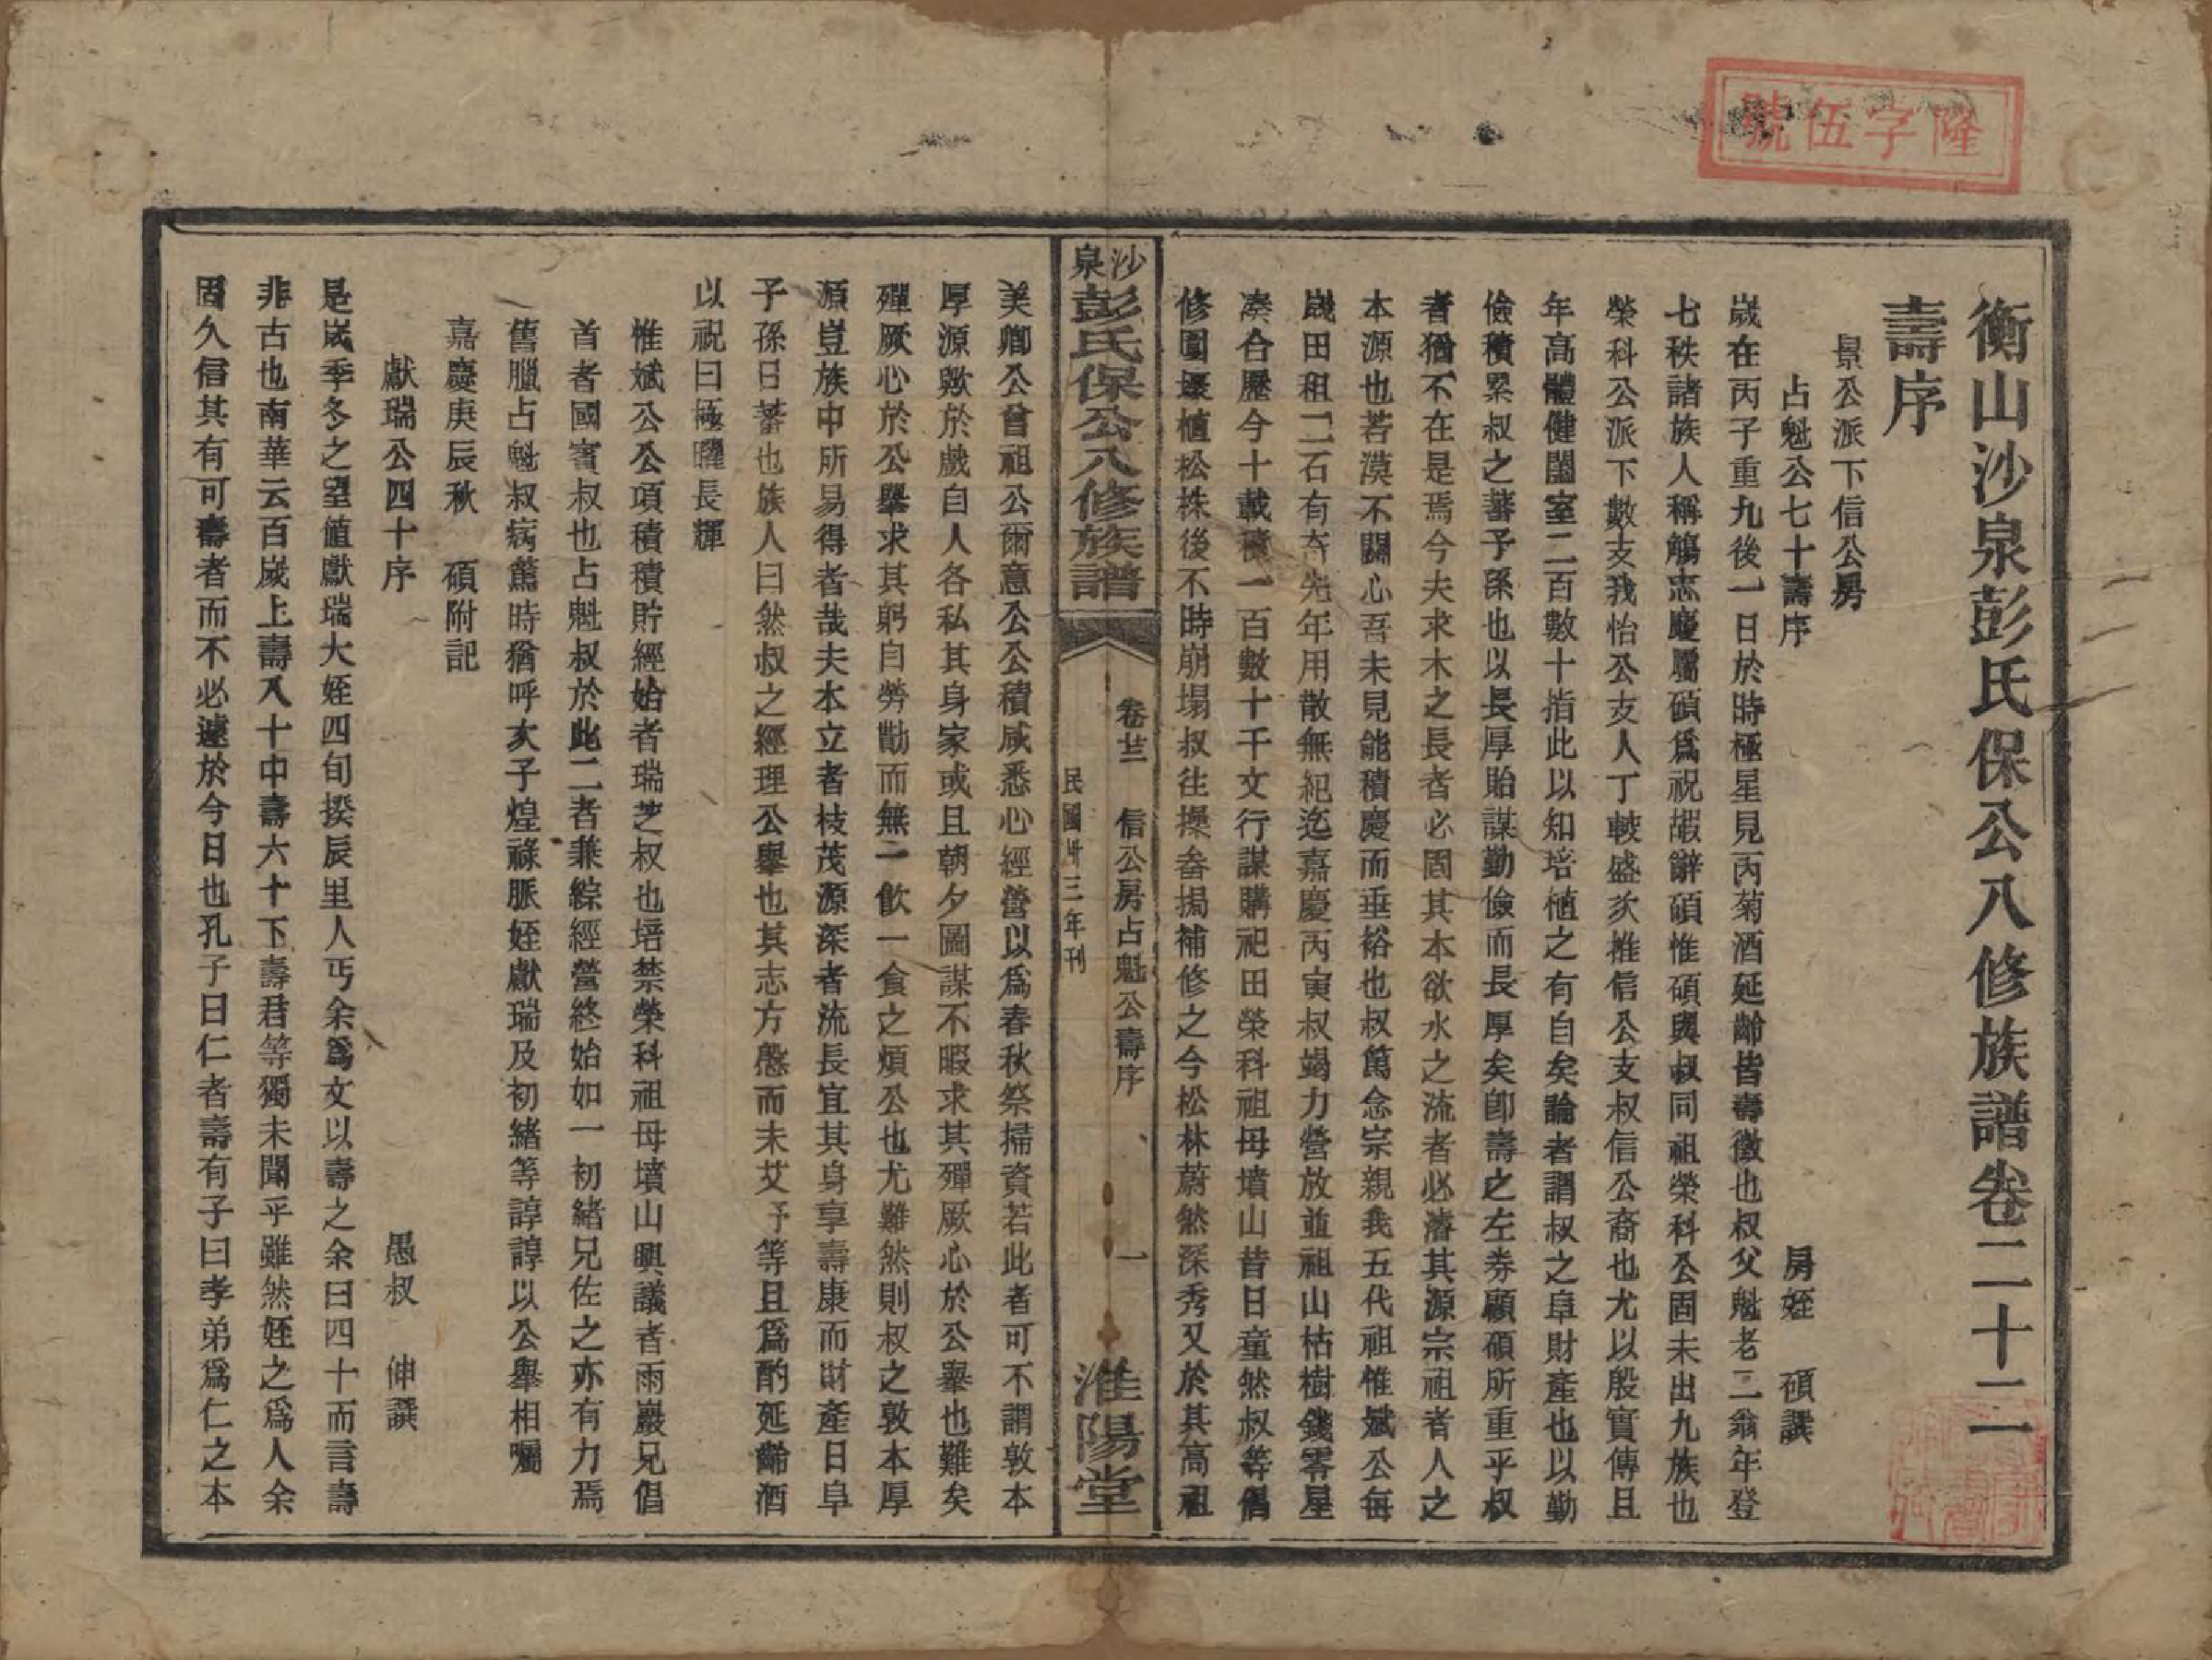 隆字伍號
衡山沙泉彭氏保公八修族譜卷二十二
壽序
景公派下信公房
占魁公七十壽序　房姪　碩譔
歲在丙子重九後一日於時極星見丙菊酒延齡皆壽徵也叔父魁老二翁年登
七秩諸族人稱觴志慶屬碩爲祝嘏辭碩惟碩與叔同祖榮科公固未出九族也
榮科公派下數支我怡公支人丁較盛次推信公支叔信公裔也尤以殷實傳且
年高體健闔室二百數十指此以知培植之有自矣論者謂叔之阜財產也以勤
儉積累叔之蕃予孫也以長厚貽謀勤儉而長厚矣卽壽之左券顧碩所重乎叔
者猶不在是焉今夫求木之長者必固其本欲水之流者必濬其源宗祖者人之
本源也若漠不關心吾未見能積慶而垂裕也叔篤念宗親我五代祖惟斌公每
歲田租一二石有奇先年用散無紀迄嘉慶丙寅叔竭力營放並祖山枯樹錢零星
湊合歷今十載積一百數十千文行謀購祀田榮科祖母墳山昔日童然叔等倡
修圍壕植松株後不時崩塌叔往操畚挶補修之今松林蔚然深秀又於其高祖
沙泉彭氏保公八修族譜　卷廿二　信公房占魁公壽序　一　淮陽堂
民國卅三年刊
美卿公曾祖公爾意公公積咸悉心經營以爲春秋祭掃資若此者可不謂敦本
厚源歟於戲自人各私其身家或且朝夕圖謀不暇求其殫厥心於公舉也難矣
殫厥心於公舉求其躬自勞勩而無一飲一食之煩公也尤難然則叔之敦本厚
源豈族中所易得者哉夫本立者枝茂源深者流長宜其身享壽康而財產日阜
子孫日蕃也族人曰然叔之經理公舉也其志方慇而未艾予等且爲酌延齡酒
以祝曰極曜長輝
惟斌公公項積積貯經始者瑞芝叔也培禁榮科祖母墳山興議者雨巖兄倡
首者國賓叔也占魁叔於此二者兼綜經營終始如一初緒兄佐之亦有力焉
舊臘占魁叔病篤時猶呼次子煌祿脈姪獻瑞及初緒等諄諄以公舉相囑
嘉慶庚辰秋　碩附記
獻瑞公四十序　愚叔　伸譔
是歲季冬之望値獻瑞大姪四旬揆辰里人丐余爲文以壽之余曰四十而言壽
非古也南華云百歲上壽八十中壽六十下壽君等獨未聞乎雖然姪之爲人余
固久信其有可壽者而不必遽於今日也孔子曰仁者壽有子曰孝弟爲仁之本